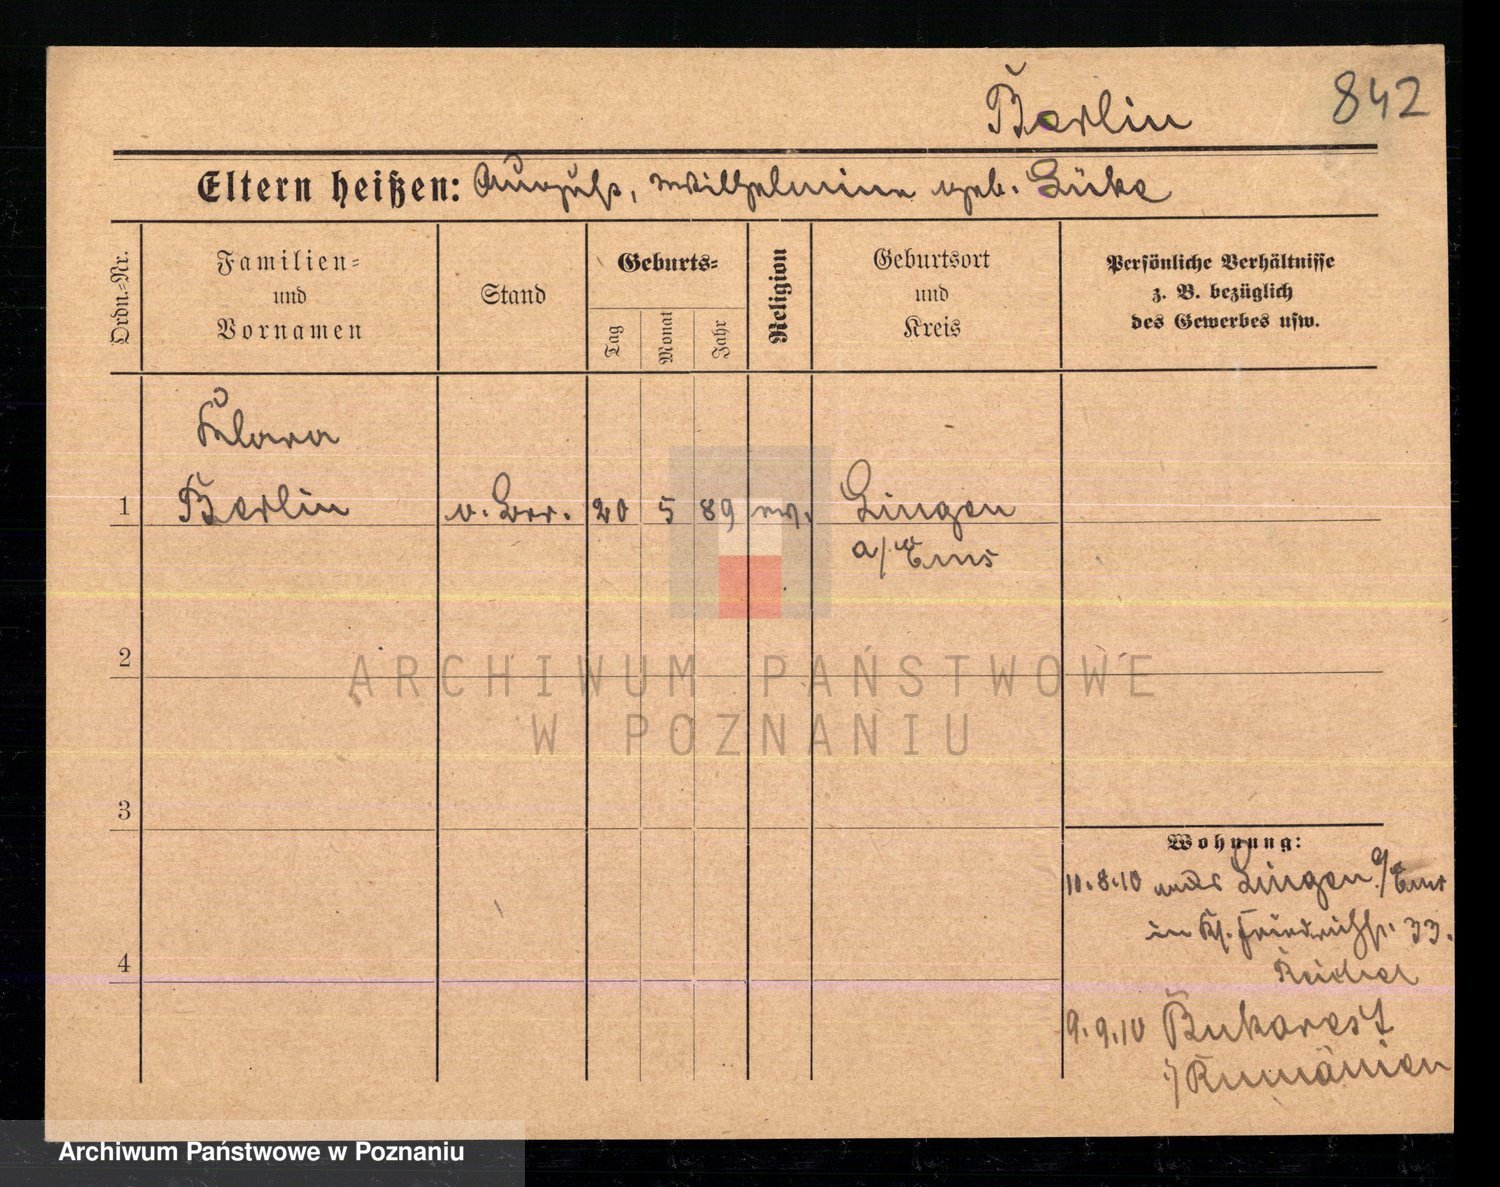 Berlin
842
Eltern heißen: August, Wilhelmine geb. Lüke
Ordn.-Nr.
Familien-
und
Vornamen
Stand
Geburts-
Tag
Monat
Jahr
Religion
Geburtsort
und
Kreis
Persönliche Verhältnisse
z. B. bezüglich
des Gewerbes usw.
Klara
1 Berlin 20 5 89 Lingen
a/Ems
ARCHIWUM PAŃSTWOWE
W POZNANIU
2
3
4
Wohnung:
10.8.10 aus Lingen a/Ems
in Kl. Friedrichstr. 33.
9.9.10 Bukarest
Rumänien
Archiwum Państwowe w Poznaniu